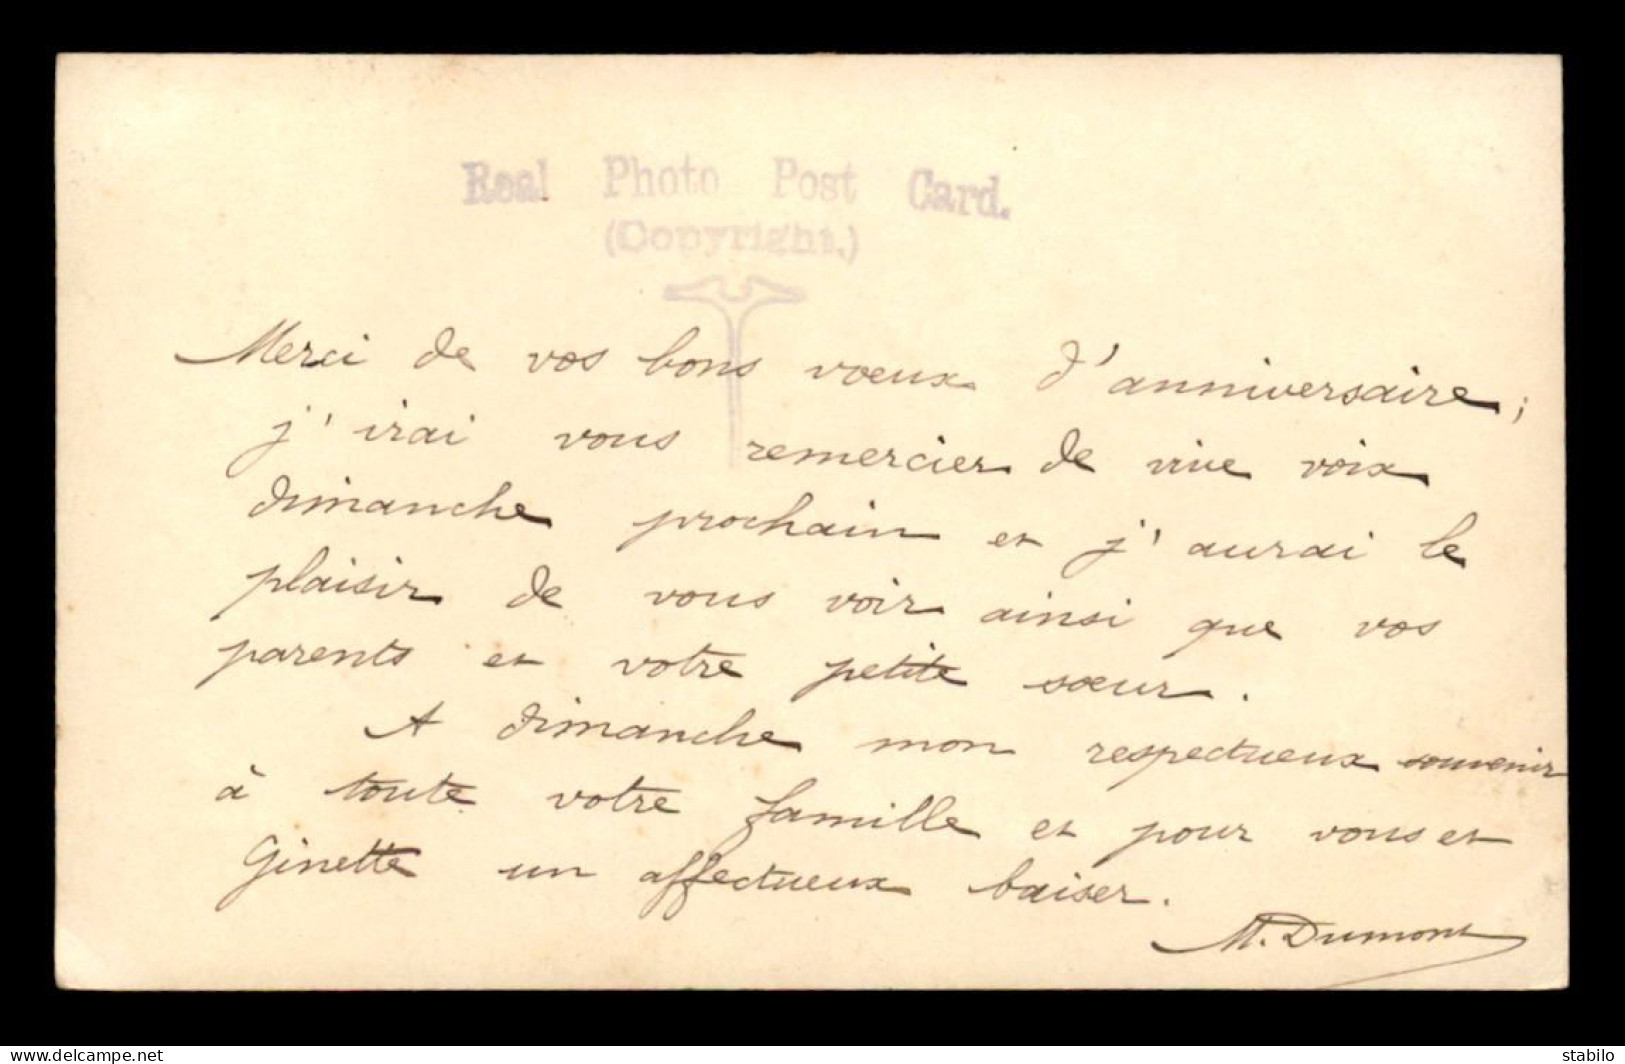 Real Photo Post Card.
(Copyright.)
Merci de vos bons voeux d'anniversaire ;
j'irai vous remercier de vive voix
dimanche prochain et j'aurai le
plaisir de vous voir ainsi que vos
parents et votre petite sœur.
A dimanche mon respectueux souvenir
à toute votre famille et pour vous et
Ginette un affectueux baiser.
M. Dumont
www.delcampe.net
stabilo